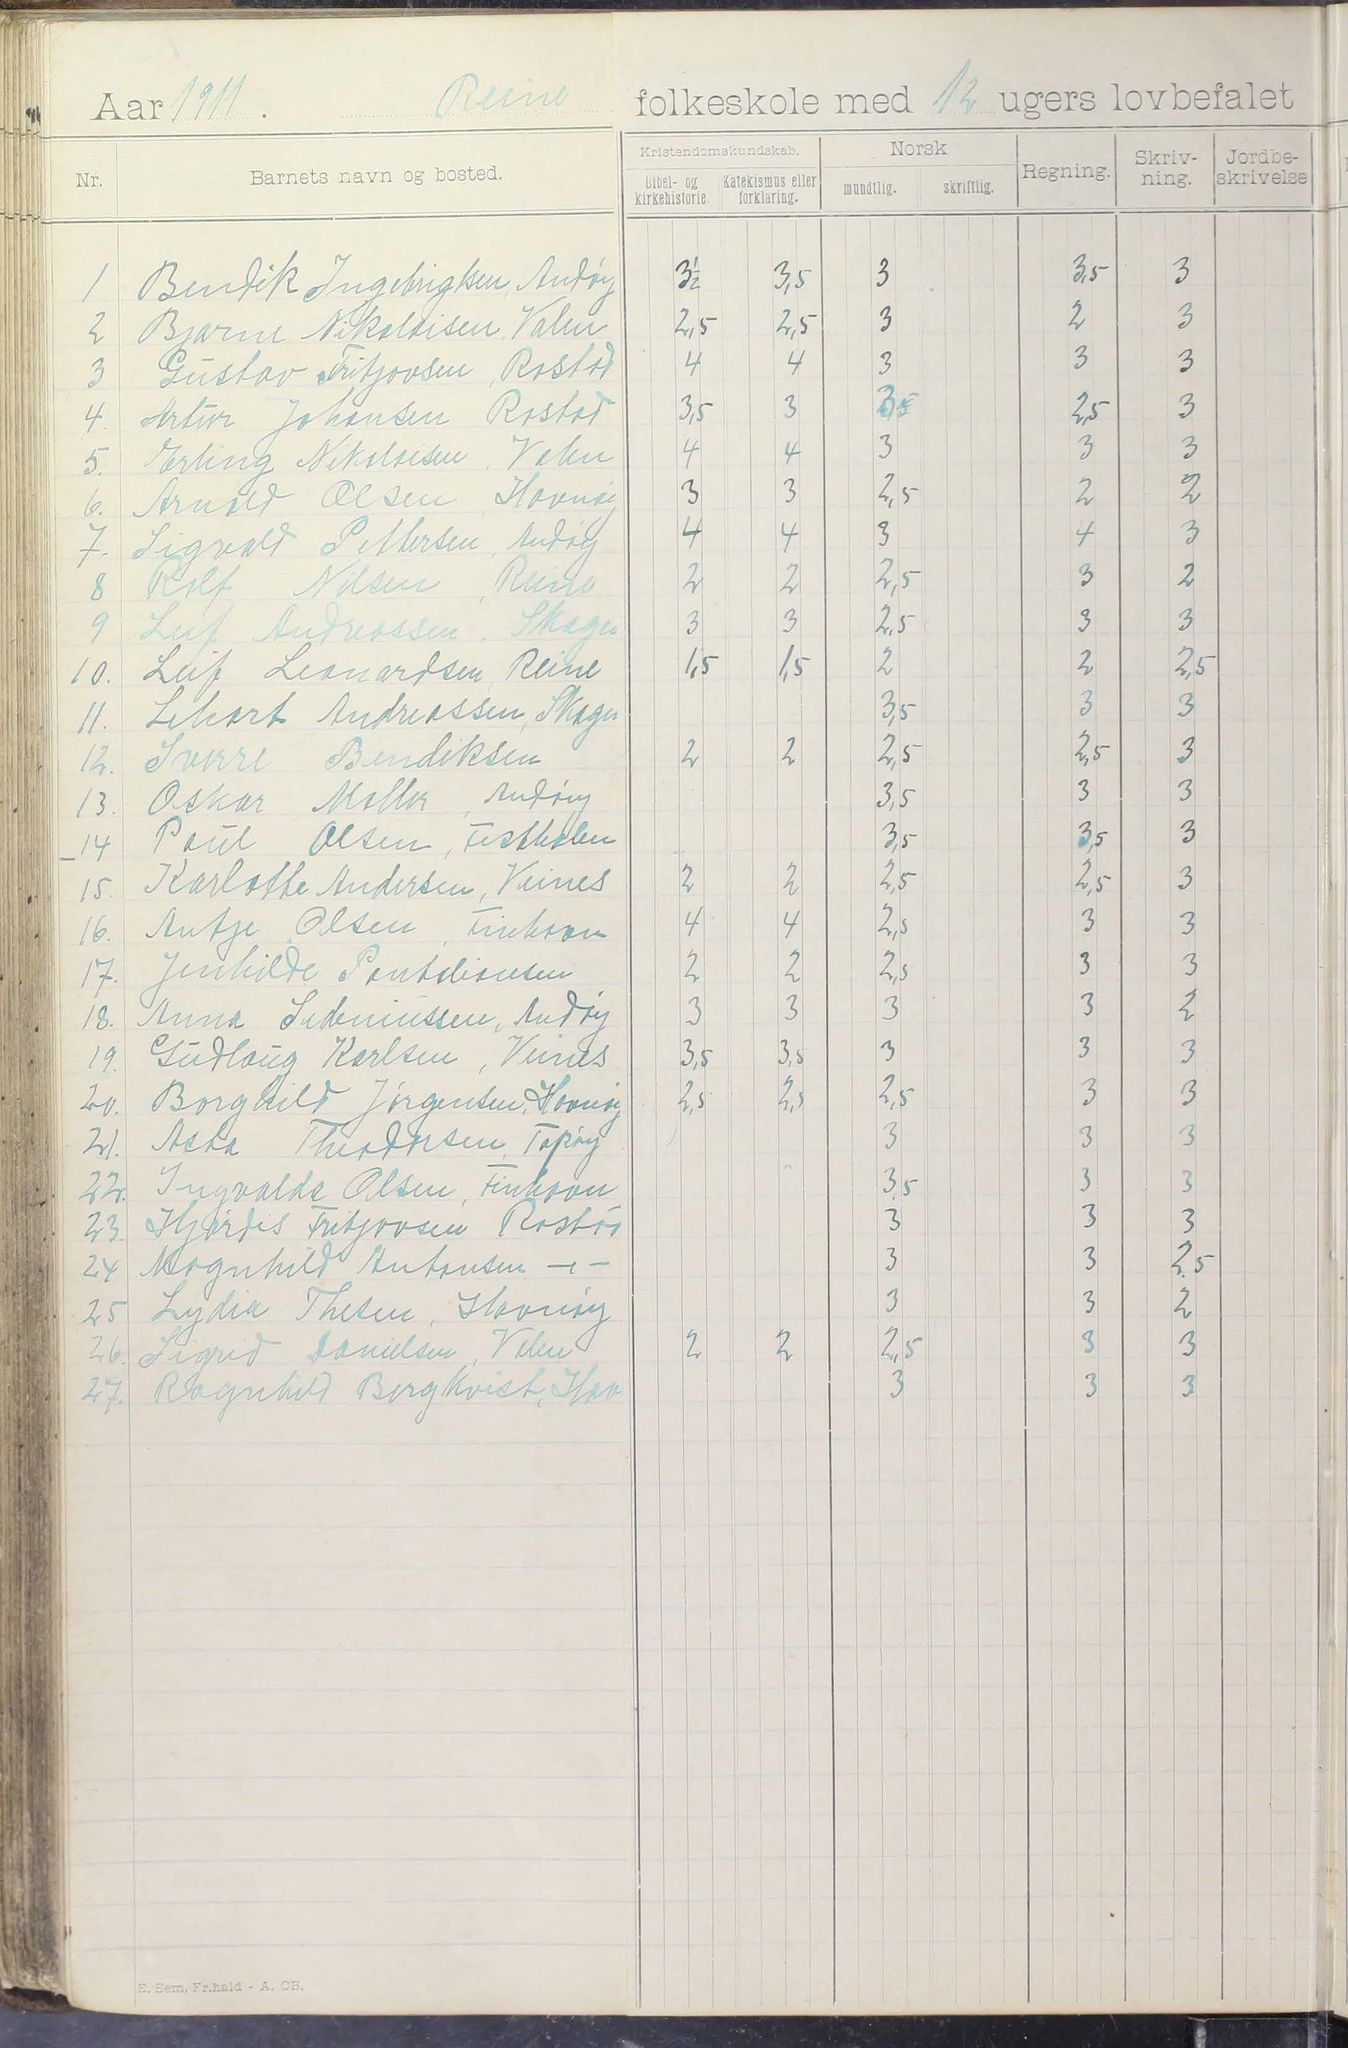 Aar 1911. Reine folkeskole med 12 ugers lovbefalet
Nr. Barnets navn og bosted. Kristendomskundskab. Norsk Regning. Skriv-ning. Jordbe-skrivelse
Bibel- og kirkehistorie. Katekismus eller forklaring. mundtlig. skriftlig.
1 Bendik Ingebrigtsen, Andöy 3½ 3,5 3 3,5 3
2 Bjarne Nikolaisen, Valen 2,5 2,5 3 2 3
3 Gustav Fritjovsen, Rostad 4 4 3 3 3
4. Artur Johansen Rostad 3,5 3 2,5 3
5. Erling Nikolaisen, Valen 4 4 3 3 3
6. Arnold Olsen, Havnöy 3 3 2,5 2 2
7. Sigvald Pettersen, Andöy 4 4 3 4 3
8 Rolf Nilsen, Reine 2 2 2,5 3 2
9 Leif Andreassen, Skagen 3 3 2,5 3 3
10. Leif Leonardsen, Reine 1,5 1,5 2 2 2,5
11. Andreassen, Skagen 3,5 3 3
12. Sverre Bendiksen 2 2 2,5 2,5 3
13. Oskar Möller, Andöy 3,5 3 3
14 Paul Olsen, 3,5 3,5 3
15. Karlothe Andersen, Veines 2 2 2,5 2,5 3
16. Antje Olsen, Finhavn 4 4 2,5 3 3
17. Jenhilde Pantelionsen 2 2 2,5 3 3
18. Anna Andöy 3 3 3 3 2
19. Gudlaug Karlsen, Veines 3,5 3,5 3 3 3
20. Borghild Jörgensen, Havnöy 2,5 2,5 2,5 3 3
21. Asta Theodorsen, Topöy 3 3 3
22. Ingvalda Olsen, Finhavn 3,5 3 3
23. Hjördis Fritjovsen Rostad 3 3 3
24 Magnhild Antonsen -"- 3 3 2,5
25 Lydia Thesen, Havnöy 3 3 2
26. Sigrid Danielsen, Valen 2 2 2,5 3 3
27. Ragnhild Bergkvist, Hav 3 3 3
E. Sem, Fr.hald - A. CB.